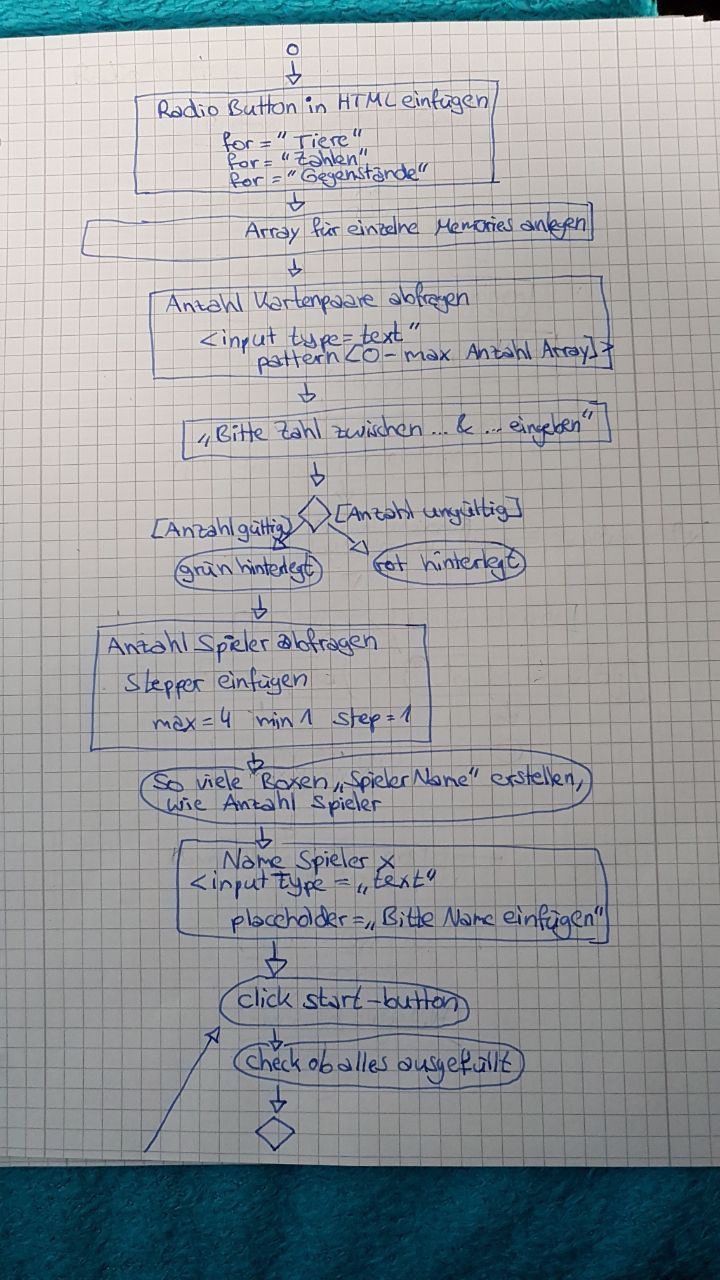 Radio Button in HTML einfügen
for="Tiere"
for="Zahlen"
for="Gegenstände"
Array für einzelne Memories anlegen
Anzahl Kartenpaare abfragen
<input type=text"
pattern [0-max Anzahl Array]}
„Bitte Zahl zwischen ... & ... eingeben"
[Anzahl gültig] [Anzahl ungültig]
grün hinterlegt rot hinterlegt
Anzahl Spieler abfragen
Stepper einfügen
max=4 min 1 step=1
So viele Boxen „Spieler Name" erstellen,
wie Anzahl Spieler
Name Spieler x
<input type=„text"
placeholder=„Bitte Name einfügen"
click start-button
check ob alles ausgefüllt